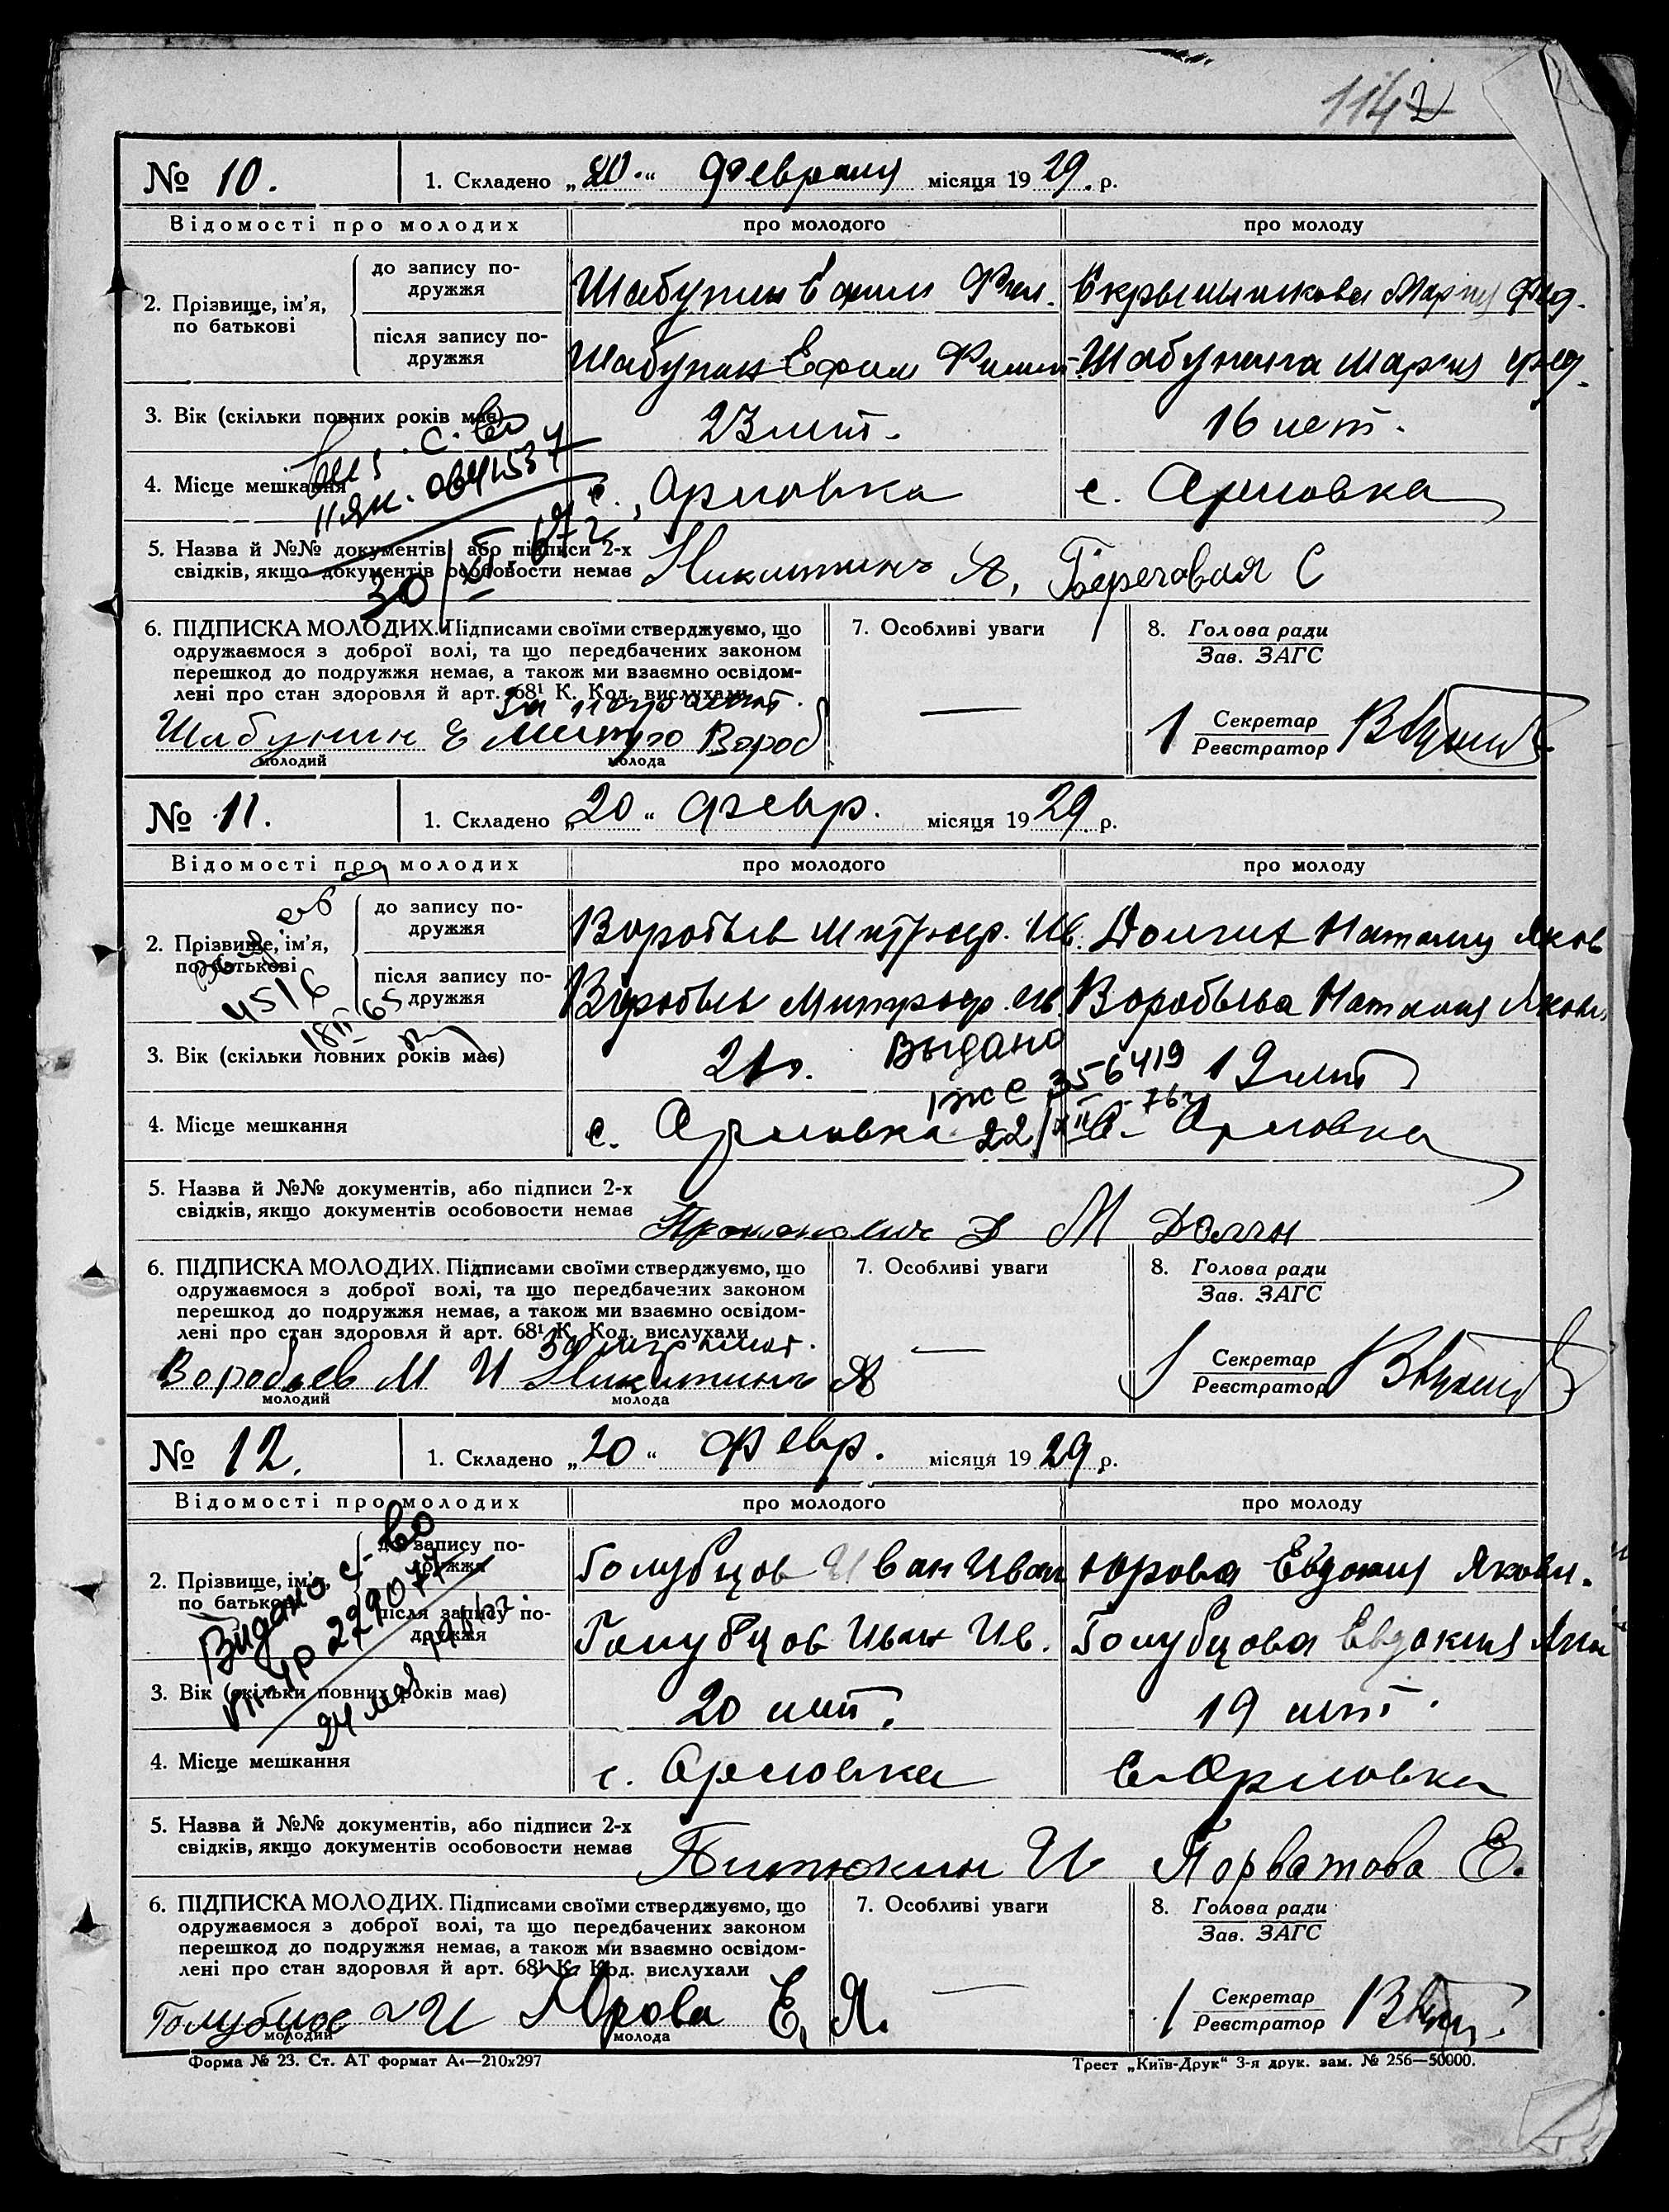 1142
№ 10. 1. Складено „20.“ Февраля місяця 1929. р.
Відомості про молодих про молодого про молоду
2. Прізвище, ім’я, по батькові
до запису подружжя Шабунин Ефим Фил. Мария Фед.
після запису подружжя Шабунин Ефим Филип Шабунина Мария Фед.
3. Вік (скільки повних років має) 23 лет. 16 лет.
4. Місце мешкання с. Орловка с. Орловка
5. Назва й №№ документів, або підписи 2-х
свідків, якщо документів особовости немає Никитинъ А, Береговая С
6. ПІДПИСКА МОЛОДИХ. Підписами своїми стверджуємо, що
одружаємося з доброї волі, та що передбачених законом
перешкод до подружжя немає, а також ми взаємно освідом-
лені про стан здоров’я й арт. 68¹ К. Код. вислухали
За неграмот.
Шабунин Е Митро Вороб
молодий молода
7. Особливі уваги —
8. Голова ради
Зав. ЗАГС
Секретар
Реєстратор
№ 11. 1. Складено „20“ февр. місяця 1929. р.
Відомості про молодих про молодого про молоду
4516
18 II 65
2. Прізвище, ім’я, по батькові
до запису подружжя Воробьев Митроф. Ив. Долгих Наталия Яков
після запису подружжя Воробьев Митроф. Ив. Воробьева Наталия Яковл.
3. Вік (скільки повних років має) 21 г. 19 лет
Выдано
356419
22/XII-76г
4. Місце мешкання с. Орловка с. Орловка
5. Назва й №№ документів, або підписи 2-х
свідків, якщо документів особовости немає Д М Долгих
6. ПІДПИСКА МОЛОДИХ. Підписами своїми стверджуємо, що
одружаємося з доброї волі, та що передбачених законом
перешкод до подружжя немає, а також ми взаємно освідом-
лені про стан здоровля й арт. 68¹ К. Код. вислухали
За неграмот.
Воробьев М И Никитинъ А
молодий молода
7. Особливі уваги —
8. Голова ради
Зав. ЗАГС
Секретар
Реєстратор
№ 12. 1. Складено „20“ Февр. місяця 1929 р.
Відомості про молодих про молодого про молоду
Видано с-во
229077
24 мая
2. Прізвище, ім’я, по батькові
до запису подружжя Голубцов Иван Иван Юрова Евдокия Яковл.
після запису подружжя Голубцов Иван Ив. Голубцова Евдокия Як
3. Вік (скільки повних років має) 20 лет. 19 лет.
4. Місце мешкання с. Орловка с. Орловка
5. Назва й №№ документів, або підписи 2-х
свідків, якщо документів особовости немає И Е.
6. ПІДПИСКА МОЛОДИХ. Підписами своїми стверджуємо, що
одружаємося з доброї волі, та що передбачених законом
перешкод до подружжя немає, а також ми взаємно освідом-
лені про стан здоровля й арт. 68¹ К. Код. вислухали
Голубцов И И Юрова Е, Я.
молодий молода
7. Особливі уваги —
8. Голова ради
Зав. ЗАГС
Секретар
Реєстратор
Форма № 23. Ст. АТ формат А₄—210x297 Трест „Київ-Друк“ 3-я друк. зам. № 256—50000.